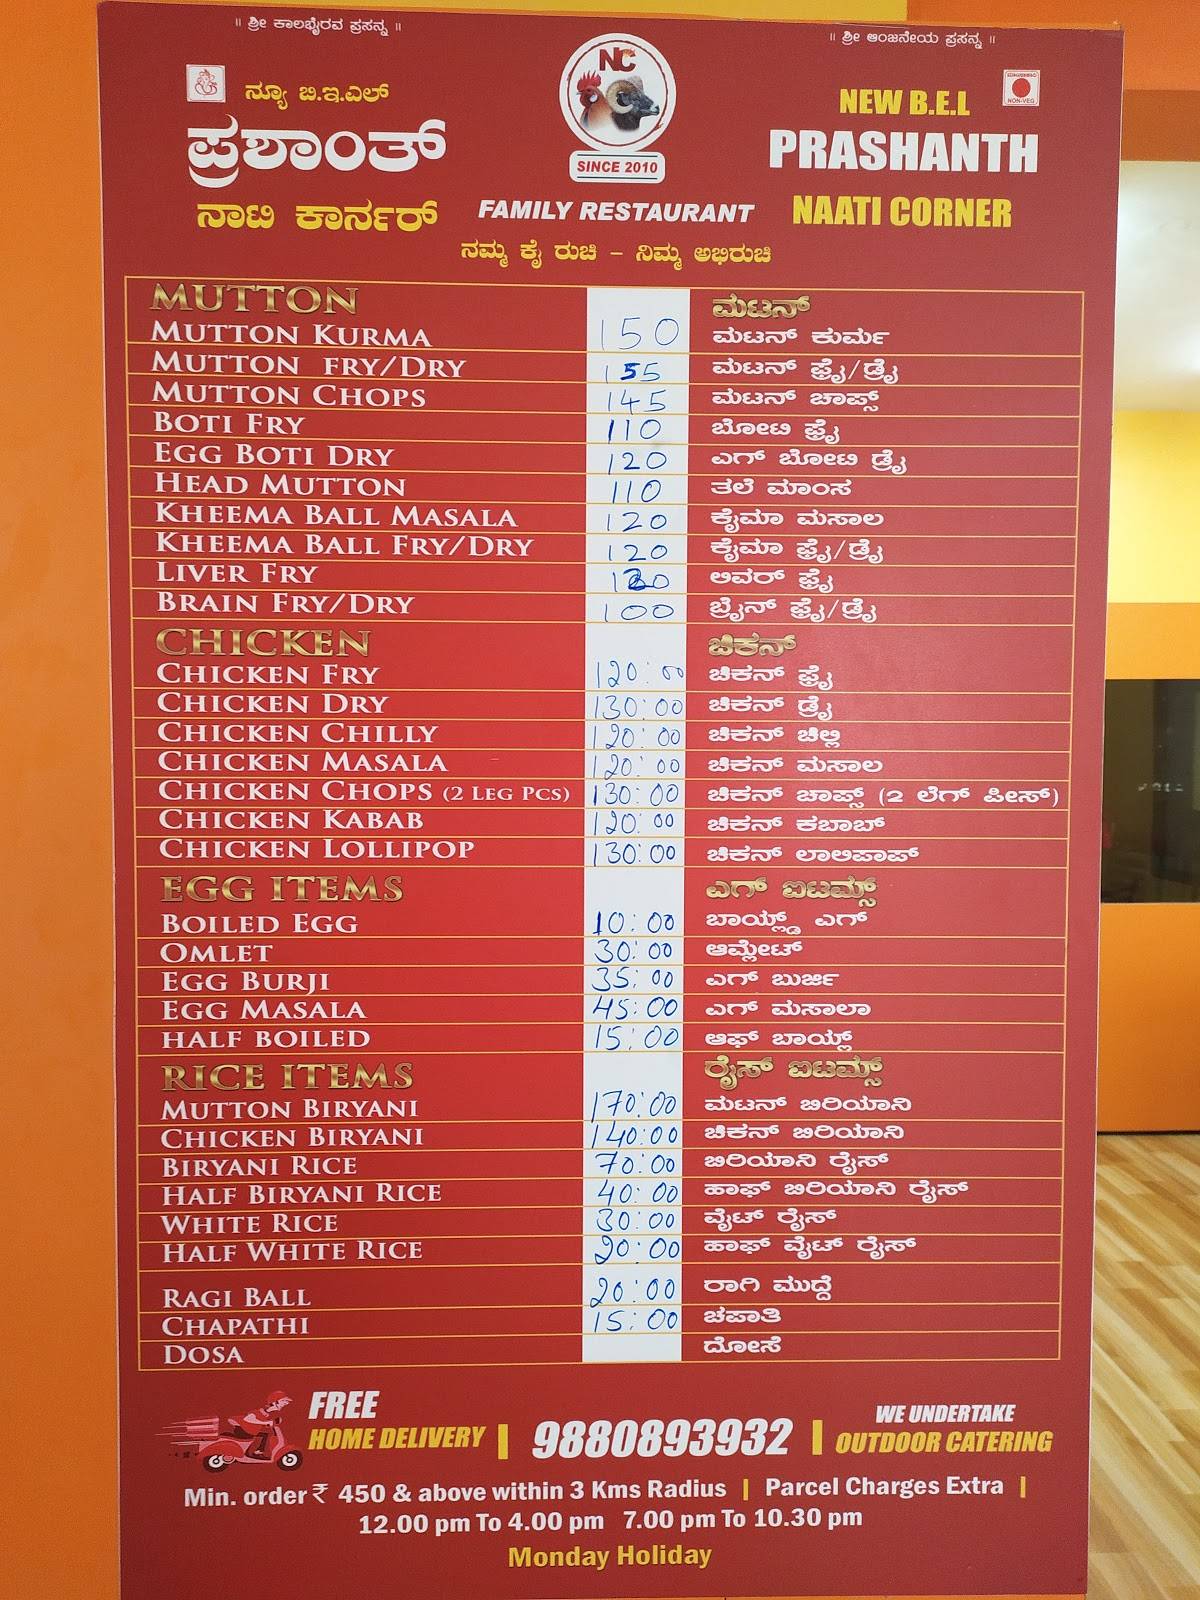 ॥ ಶ್ರೀ ಕಾಲಭೈರವ ಪ್ರಸನ್ನ ॥
॥ ಶ್ರೀ ಆಂಜನೇಯ ಪ್ರಸನ್ನ ॥
ನ್ಯೂ ಬಿ.ಇ.ಎಲ್
ಪ್ರಶಾಂತ್
ನಾಟಿ ಕಾರ್ನರ್
NC
SINCE 2010
FAMILY RESTAURANT
NON-VEG
NEW B.E.L
PRASHANTH
NAATI CORNER
ನಮ್ಮ ಕೈ ರುಚಿ - ನಿಮ್ಮ ಅಭಿರುಚಿ
MUTTON ಮಟನ್
MUTTON KURMA 150 ಮಟನ್ ಕುರ್ಮ
MUTTON FRY/DRY 155 ಮಟನ್ ಫ್ರೈ/ಡ್ರೈ
MUTTON CHOPS 145 ಮಟನ್ ಚಾಪ್ಸ್
BOTI FRY 110 ಬೋಟಿ ಫ್ರೈ
EGG BOTI DRY 120 ಎಗ್ ಬೋಟಿ ಡ್ರೈ
HEAD MUTTON 110 ತಲೆ ಮಾಂಸ
KHEEMA BALL MASALA 120 ಕೈಮಾ ಮಸಾಲ
KHEEMA BALL FRY/DRY 120 ಕೈಮಾ ಫ್ರೈ/ಡ್ರೈ
LIVER FRY ಲಿವರ್ ಫ್ರೈ
BRAIN FRY/DRY 100 ಬ್ರೈನ್ ಫ್ರೈ/ಡ್ರೈ
CHICKEN ಚಿಕನ್
CHICKEN FRY 120:00 ಚಿಕನ್ ಫ್ರೈ
CHICKEN DRY 130:00 ಚಿಕನ್ ಡ್ರೈ
CHICKEN CHILLY 120:00 ಚಿಕನ್ ಚಿಲ್ಲಿ
CHICKEN MASALA 120:00 ಚಿಕನ್ ಮಸಾಲ
CHICKEN CHOPS (2 LEG PCS) 130:00 ಚಿಕನ್ ಚಾಪ್ಸ್ (2 ಲೆಗ್ ಪೀಸ್)
CHICKEN KABAB 120:00 ಚಿಕನ್ ಕಬಾಬ್
CHICKEN LOLLIPOP 130:00 ಚಿಕನ್ ಲಾಲಿಪಾಪ್
EGG ITEMS ಎಗ್ ಐಟಮ್ಸ್
BOILED EGG 10:00 ಬಾಯ್ಲ್ಡ್ ಎಗ್
OMLET 30:00 ಆಮ್ಲೇಟ್
EGG BURJI 35:00 ಎಗ್ ಬುರ್ಜಿ
EGG MASALA 45:00 ಎಗ್ ಮಸಾಲಾ
HALF BOILED 15:00 ಆಫ್ ಬಾಯ್ಲ್
RICE ITEMS ರೈಸ್ ಐಟಮ್ಸ್
MUTTON BIRYANI 170:00 ಮಟನ್ ಬಿರಿಯಾನಿ
CHICKEN BIRYANI 140:00 ಚಿಕನ್ ಬಿರಿಯಾನಿ
BIRYANI RICE 70:00 ಬಿರಿಯಾನಿ ರೈಸ್
HALF BIRYANI RICE 40:00 ಹಾಫ್ ಬಿರಿಯಾನಿ ರೈಸ್
WHITE RICE 30:00 ವೈಟ್ ರೈಸ್
HALF WHITE RICE 20:00 ಹಾಫ್ ವೈಟ್ ರೈಸ್
RAGI BALL 20:00 ರಾಗಿ ಮುದ್ದೆ
CHAPATHI 15:00 ಚಪಾತಿ
DOSA ದೋಸೆ
FREE
HOME DELIVERY | 9880893932 |
WE UNDERTAKE
OUTDOOR CATERING
Min. order ₹ 450 & above within 3 Kms Radius | Parcel Charges Extra |
12.00 pm To 4.00 pm 7.00 pm To 10.30 pm
Monday Holiday